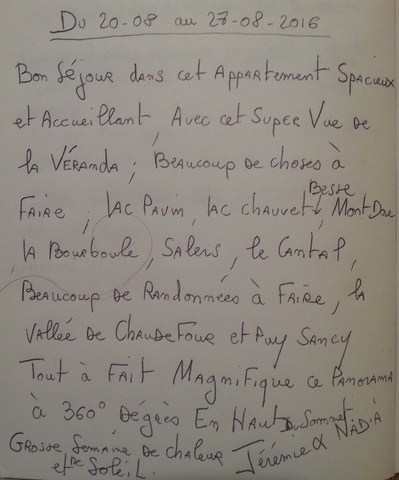 Du 20-08 au 27-08-2016
Bon Séjour dans cet Appartement Spacieux
et Accueillant, Avec cet Super Vue de
la Véranda ; Beaucoup de choses à
Faire ; lac Pavin, lac chauvet, Besse, Mont Dore
la Bourboule, Salers, le Cantal,
Beaucoup de Randonnées à Faire, la
Vallée de Chaudefour et Puy Sancy
Tout à Fait Magnifique ce Panorama
à 360° Dégrès En Haut du Sommet
Grosse Semaine de Chaleur
et de Soleil.
Jérémie & Nadia